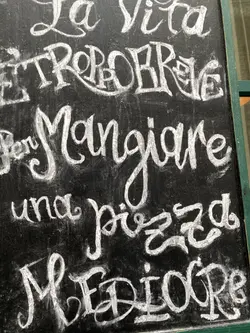 La Vita
È TROPPO BREVE
Per Mangiare
una pizza
MEDIOCRE